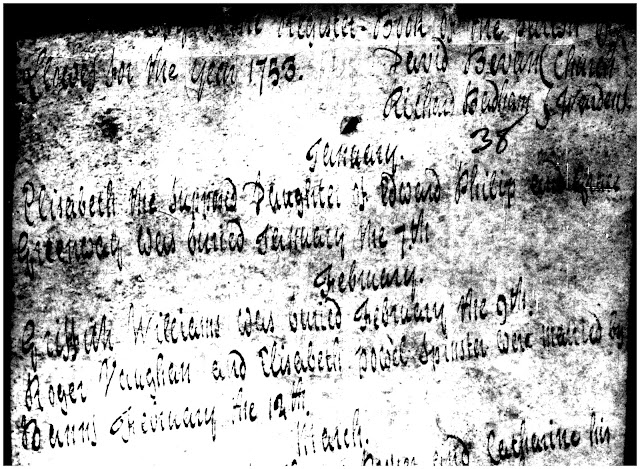 Register-Book of the parish of
for the year 1753. David Bevan Church
Richard Wardens
38
January.
Elisabeth the supposed Daughter of Edward Philip and
Greenway was buried January the 7th
February.
Griffith Williams was buried February the 9th.
Roger Vaughan and Elisabeth Powel Spinster were married by
Banns February the 12th.
March.
and Catharine his